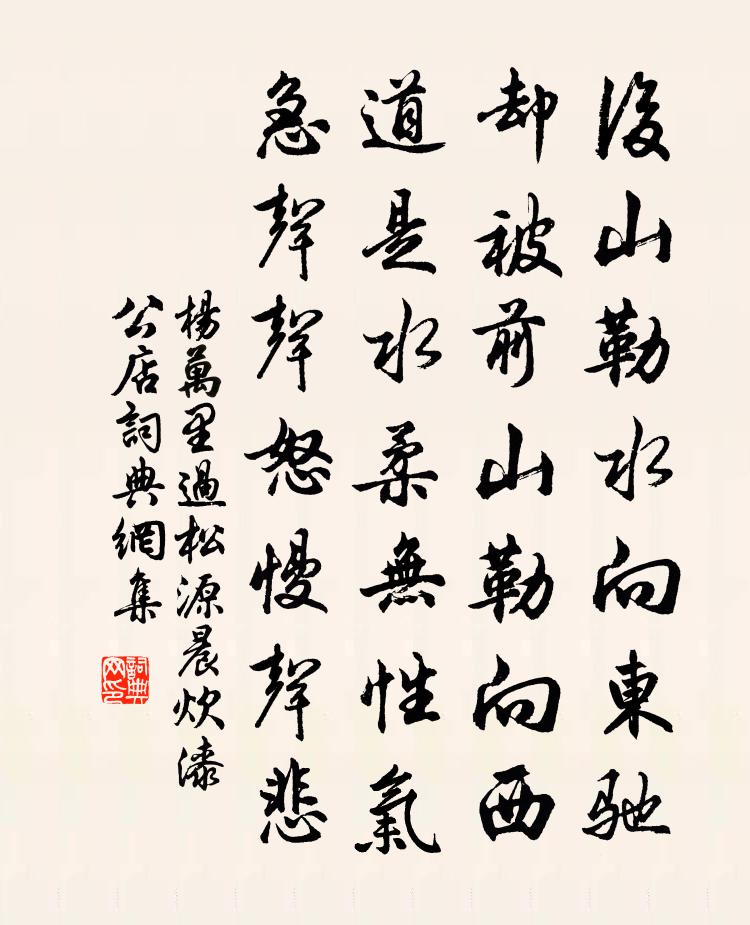 後山勒水向東馳
却被前山勒向西
道是水柔無性氣
急聲聲怒慢聲悲
楊萬里過松源晨炊漆
公店詞典網集
詞典網印